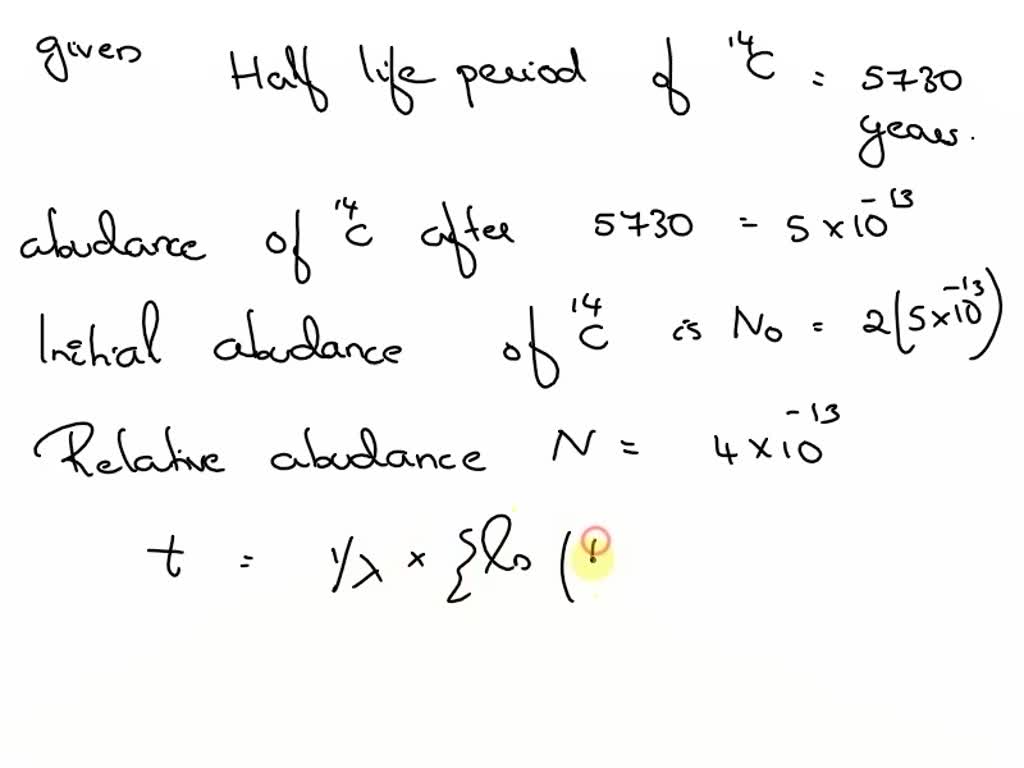 given Half life period of ¹⁴C = 5730
years.
abudance of ¹⁴C after 5730 = 5 × 10⁻¹³
Initial abudance of ¹⁴C is N₀ = 2(5×10⁻¹³)
Relative abudance N = 4 × 10⁻¹³
t = 1/λ × {ln (